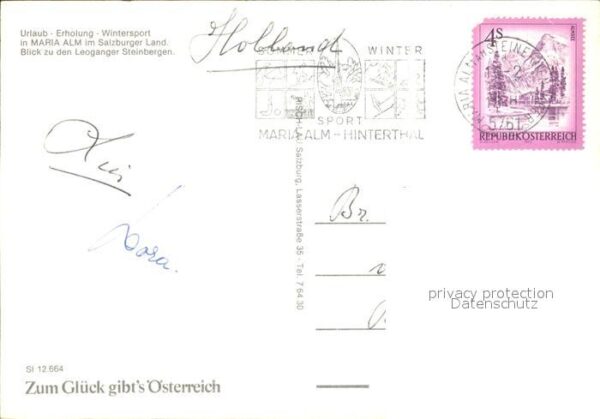 Urlaub · Erholung · Wintersport
in MARIA ALM im Salzburger Land.
Blick zu den Leoganger Steinbergen.
Holland
SOMMER WINTER
SPORT
MARIA ALM - HINTERTHAL
4S
REPUBLIK ÖSTERREICH
5761
Salzburg, Lasserstraße 35 · Tel. 7 64 30
Br.
privacy protection
Datenschutz
SI 12.664
Zum Glück gibt's Österreich